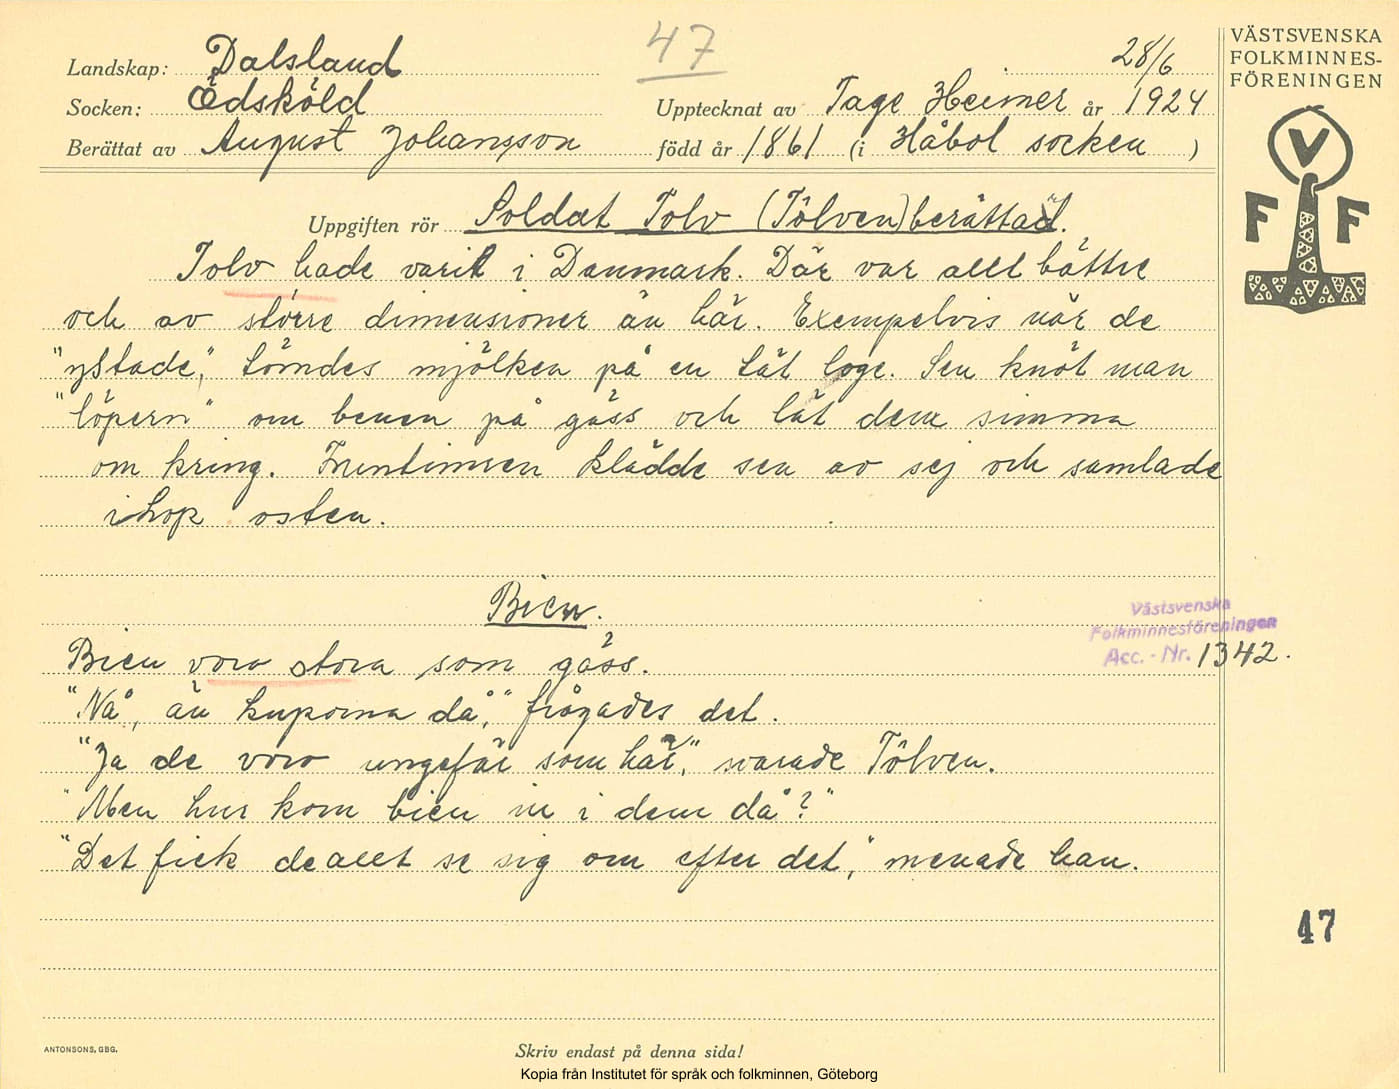 47
28/6
Landskap: Dalsland
Socken: Ödsköld
Upptecknat av Tage Heimer år 1924
Berättat av August Johansson född år 1861 (i Håbol socken )
VÄSTSVENSKA
FOLKMINNES-
FÖRENINGEN
V
F F
Uppgiften rör Soldat Tolv (Tölven) berättad.
Tolv hade varit i Danmark. Där var allt bättre
och av större dimensioner än här. Exempelvis när de
"ystade", tömdes mjölken på en tät loge. Sen knöt man
"löpern" om benen på gäss och lät dem simma
om kring. Fruntimren klädde sen av sej och samlade
ihop osten.
Bien.
Bien voro stora som gäss.
"Nå, än kuporna då," frågades det.
"Ja de voro ungefär som här," svarade Tölven.
"Men hur kom bien in i dem då?"
"Det fick de allt se sig om efter det," menade han.
Västsvenska
Folkminnesföreningen
Acc. - Nr. 1342.
47
ANTONSONS, GBG.
Skriv endast på denna sida!
Kopia från Institutet för språk och folkminnen, Göteborg